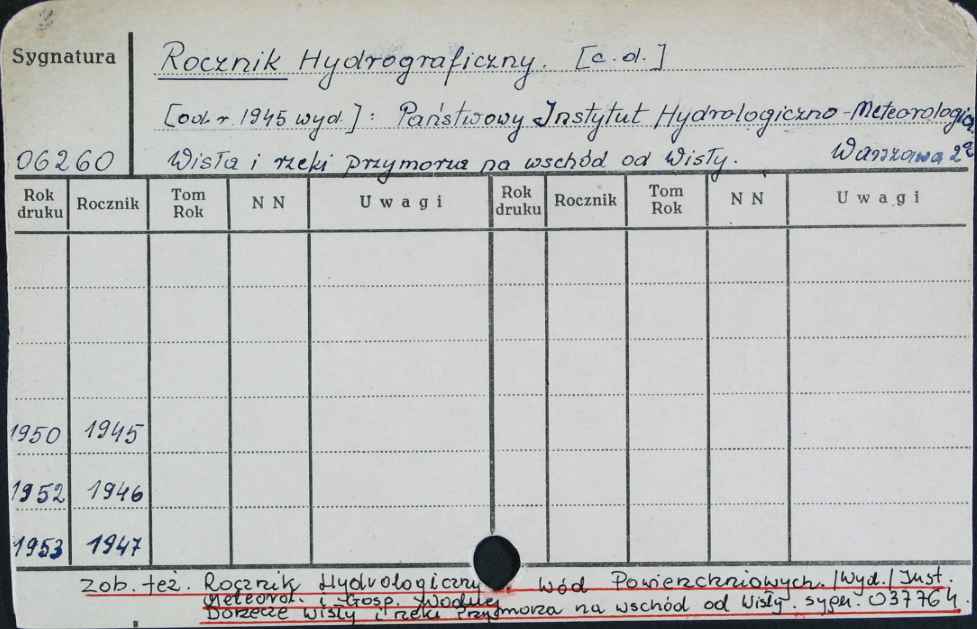 Sygnatura
Rocznik Hydrograficzny. [c.d.]
[od r. 1945 wyd.]: Państwowy Instytut Hydrologiczno-Meteorologicz
06260 Wisła i rzeki przymorza na wschód od Wisły. Warszawa
Rok druku Rocznik Tom Rok N N Uwagi Rok druku Rocznik Tom Rok N N Uwagi
1950 1945
1952 1946
1953 1947
zob. też. Rocznik Hydrologiczny Wód Powierzchniowych. /Wyd./ Inst.
Meteorol. i Gosp. Wodnej
Dorzecze Wisły i rzeki Przymorza na wschód od Wisły. sygn. 037764.